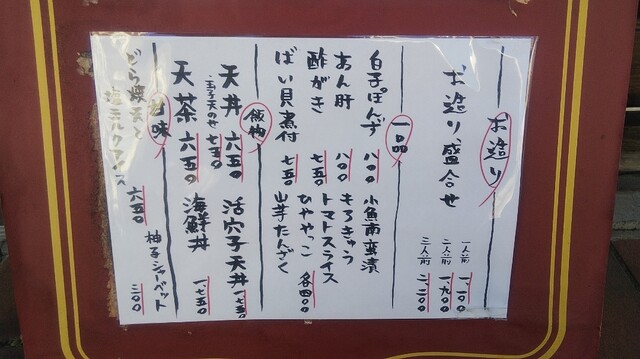 お造り
お造り盛合せ
一人前 一、一〇〇
二人前 一、九〇〇
三人前 二、二〇〇
一品
白子ぽんず 八〇〇
あん肝 八〇〇
酢がき 七五〇
ばい貝煮付 七五〇
小魚南蛮漬
もろきゅう
トマトスライス
ひややっこ 各四〇〇
山芋たんざく
飯物
天丼 六五〇
・玉子天のせ 七五〇
天茶 六五〇
活穴子天丼 一、七五〇
海鮮丼 一、七五〇
甘味
どら焼天と
塩ミルクアイス 六五〇
柚子シャーベット 三〇〇